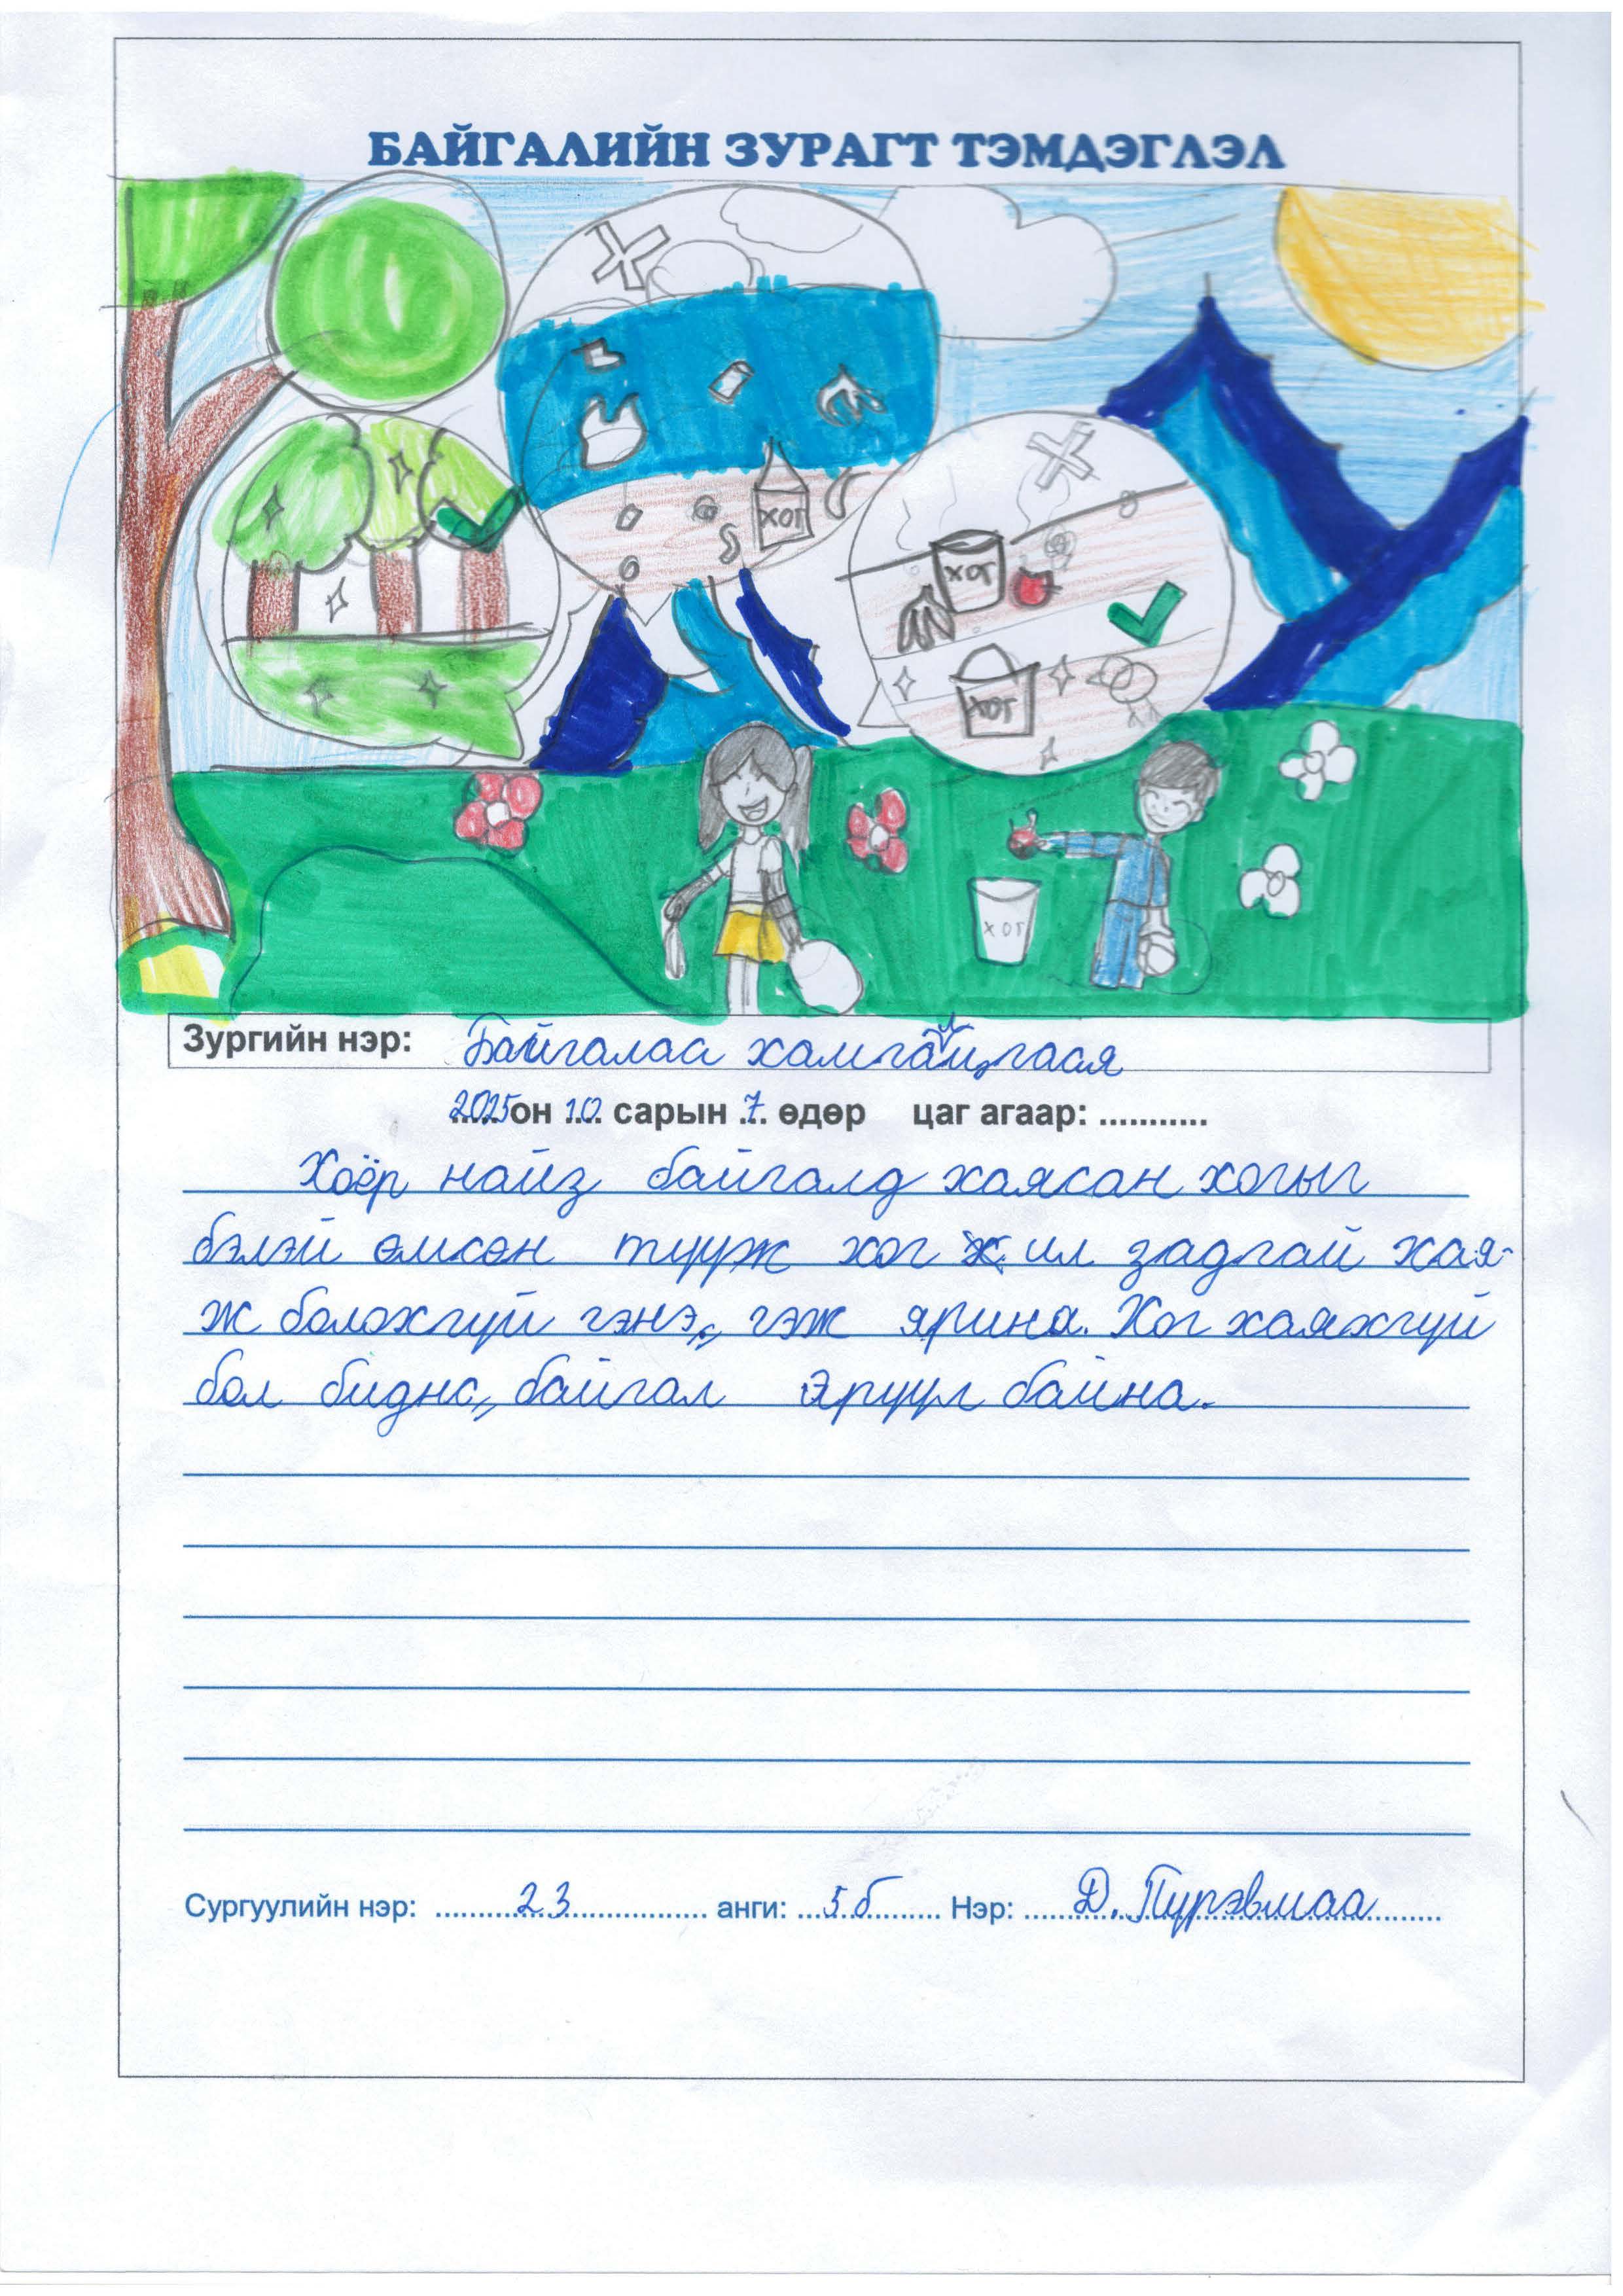 БАЙГАЛИЙН ЗУРАГТ ТЭМДЭГЛЭЛ
ХОГ
ХОГ
ХОГ
ХОГ
Зургийн нэр: Байгалаа
2025 он 10 сарын 7 өдөр цаг агаар: ...........
Хоёр найз байгалд хаясан хогыг
бэлэй өмсөн түүж хог ил задгай хая-
ж болохгүй гэнэ, гэж ярина. Хог хаяхгүй
бол бидна, байгал эрүүл байна.
Сургуулийн нэр: 23 анги: 5б Нэр: Д. Пүрэвмаа